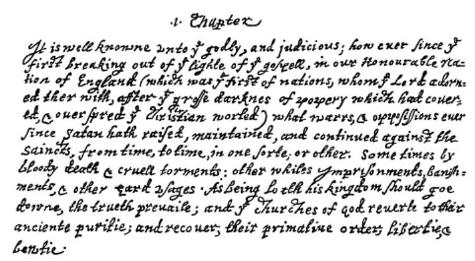 .1. Chapter
It is well knowne vnto yͤ godly, and judicious; how ever since yͤ
first breaking out of yͤ lighte of yͤ gospell, in our Honourable Na-
tion of England (which was yͤ first of nations, whom yͤ Lord adorn-
ed ther with, after yͤ grosse darknes of popery which had cover-
ed, & overspred yͤ Christian world) what warrs, & oppossissions ever
since Satan hath raised, maintained, and continued against the
Saincts, from time, to time, in one sorte, or other. Some times by
bloody death & cruell torments; other whiles Imprisonments, banish-
ments, & other hard vsages. As being loth his kingdom should goe
downe, the trueth prevaile; and yͤ Churches of god reverte to their
anciente puritie; and recover, their primative order, libertie, &
bewtie.